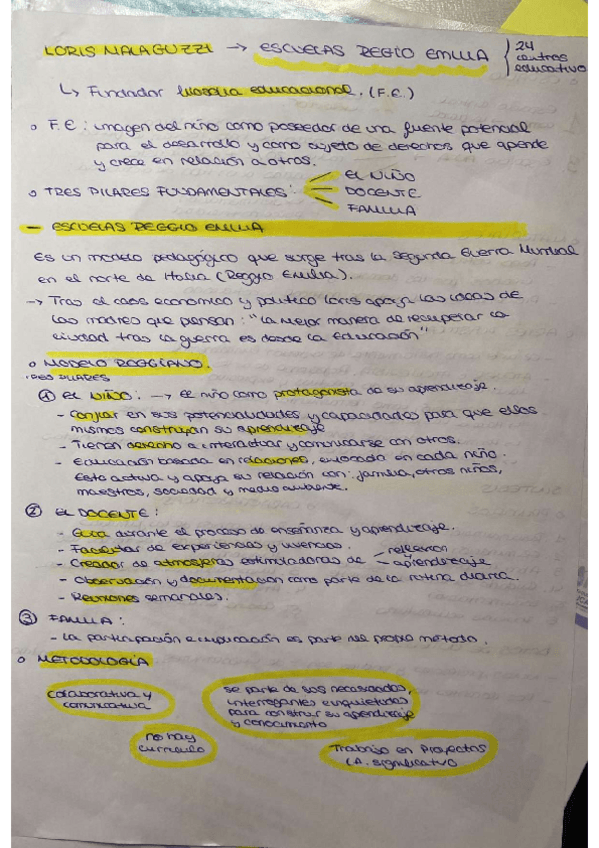 LORIS MALAGUZZI → ESCUELAS REGIO EMILIA
24 centros educativo
↳ Fundador filosofia educacional. (F.E.)
○ F.E: imagen del niño como poseedor de una fuente potencial
para el desarrollo y como sujeto de derechos que aprende
y crece en relación a otros.
○ TRES PILARES FUNDAMENTALES:
EL NIÑO
DOCENTE
FAMILIA
- ESCUELAS REGGIO EMILIA
Es un modelo pedagógico que surge tras la Segunda Guerra Mundial
en el norte de Italia (Reggio Emilia).
→ Tras el caos económico y político loris apoya las ideas de
las madres que piensan: "la mejor manera de recuperar la
ciudad tras la guerra es desde la Educación"
○ MODELO REGGIANO.
TRES PILARES
① EL NIÑO: → El niño como protagonista de su aprendizaje.
- Confiar en sus potencialidades y capacidades para que ellos
mismos construyan su aprendizaje
- Tienen derecho a interactuar y comunicarse con otros.
- Educación basada en relaciones, enfocada en cada niño.
Esto activa y apoya su relación con: familia, otros niños,
maestros, sociedad y medio ambiente.
② EL DOCENTE:
- Guía durante el proceso de enseñanza y aprendizaje.
- Facilitar de experiencias y vivencias.
- Creador de atmosferas estimuladoras de
- reflexion
- aprendizaje
- Observación y documentación como parte de la rutina diaria.
- Reuniones semanales.
③ FAMILIA:
- La participación e implicación es parte del propio metodo.
○ METODOLOGÍA
colaborativa y
comunicativa
se parte de sus necesidades,
interrogantes e inquietudes
para construir su aprendizaje
y conocimiento
no hay
currículo
Trabajo en Proyectos
(A. significativo